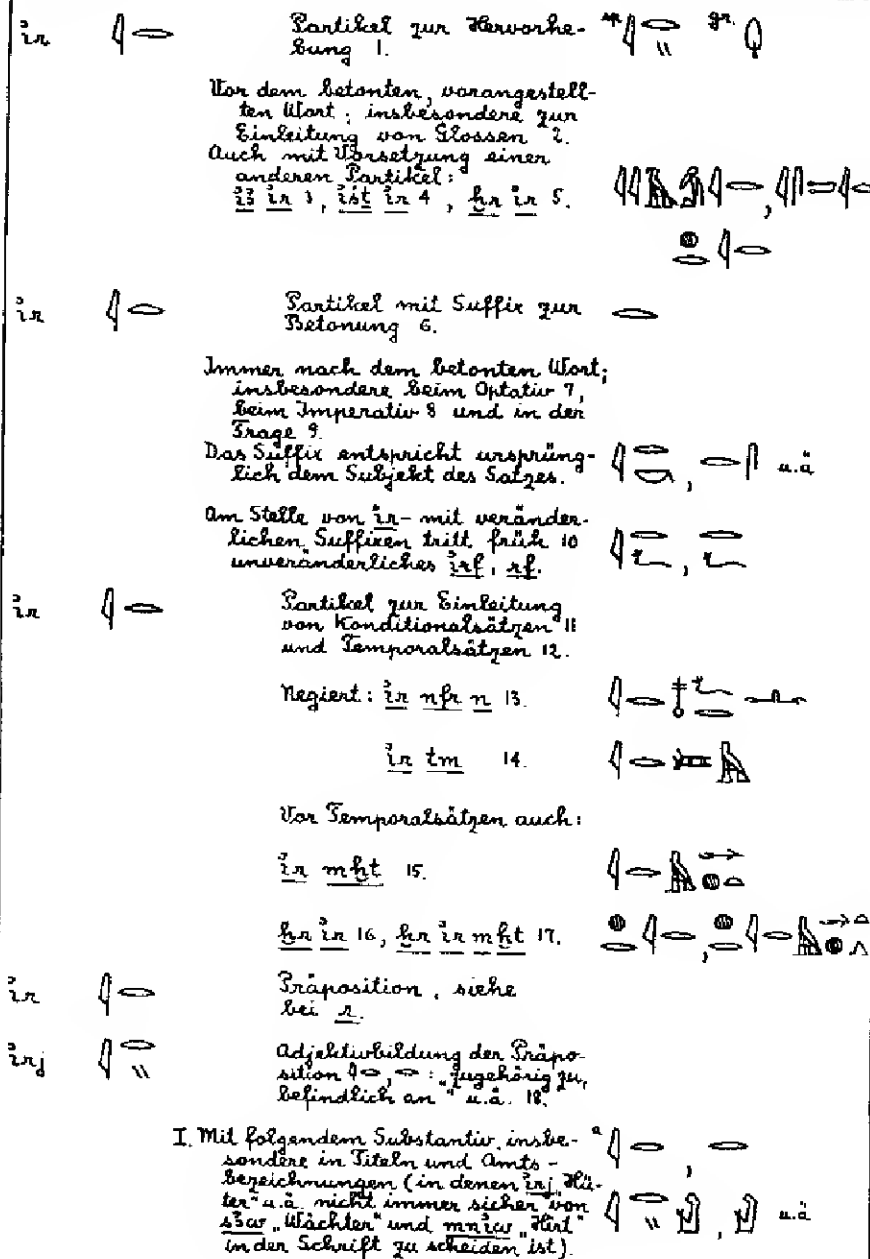 ı͗r 𓇋𓂋 Partikel zur Hervorhe- sp. 𓇋𓂋𓏭 gr.
bung 1.
Vor dem betonten, vorangestell-
ten Wort; insbesondere zur
Einleitung von Glossen 2.
Auch mit Vorsetzung einer
anderen Partikel:
ı͗ꜣ ı͗r 3, ı͗sṯ ı͗r 4, ḫr ı͗r 5.
𓐍𓂋𓇋𓂋
ı͗r 𓇋𓂋 Partikel mit Suffix zur 𓂋
Betonung 6.
Immer nach dem betonten Wort;
insbesondere beim Optativ 7,
beim Imperativ 8 und in der
Frage 9.
Das Suffix entspricht ursprüng- 𓇋𓂋𓎡, 𓂋𓋴 u.ä
lich dem Subjekt des Satzes.
Am Stelle von ı͗r- mit veränder-
lichen Suffixen tritt früh 10 𓇋𓂋𓆑, 𓂋𓆑
unveränderliches ı͗rf, rf.
ı͗r 𓇋𓂋 Partikel zur Einleitung
von Konditionalsätzen 11
und Temporalsätzen 12.
Negiert: ı͗r nfr n 13. 𓇋𓂋𓄤𓆑𓂋𓂜
ı͗r tm 14. 𓇋𓂋𓍃𓅓
Vor Temporalsätzen auch:
ı͗r mḫt 15. 𓇋𓂋𓅓𓐍𓏏
ḫr ı͗r 16, ḫr ı͗r mḫt 17.
ı͗r 𓇋𓂋 Präposition, siehe
bei r.
ı͗rj 𓇋𓂋𓏭 Adjektivbildung der Präpo-
sition 𓇋𓂋, 𓂋: „zugehörig zu,
befindlich an" u.ä. 18.
I. Mit folgendem Substantiv, insbe- a 𓇋𓂋, 𓂋
sondere in Titeln und Amts-
bezeichnungen (in denen ı͗rj „Hü-
ter" u.ä. nicht immer sicher von u.ä
sꜣw „Wächter" und mnı͗w „Hirt"
in der Schrift zu scheiden ist).